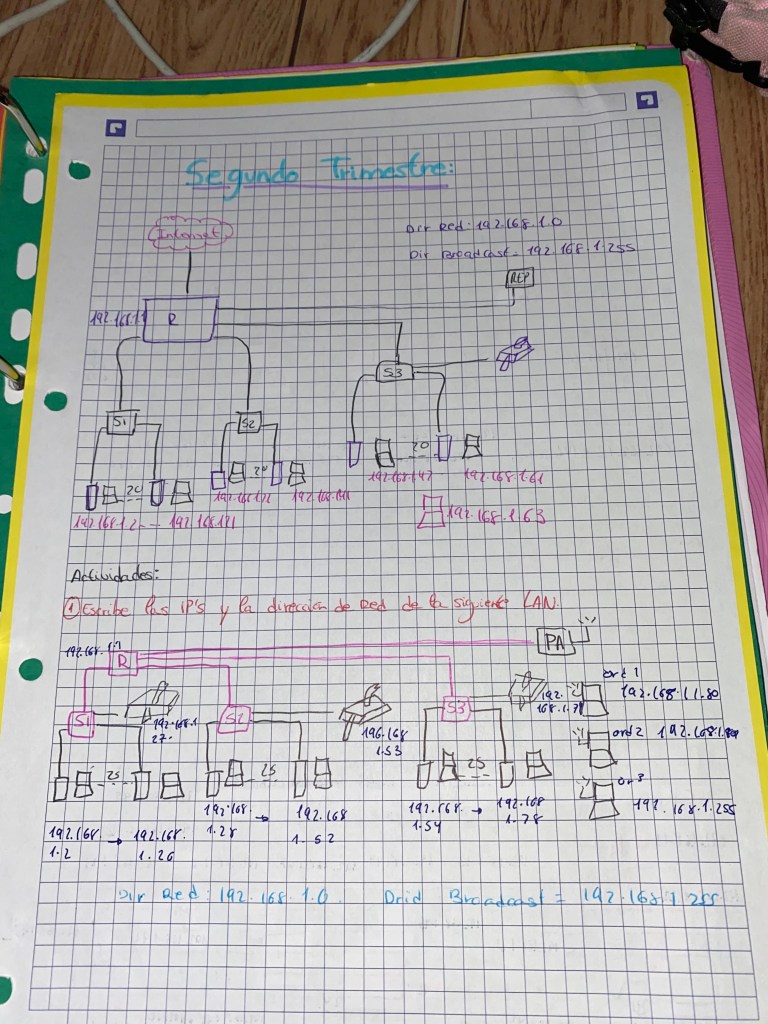 Segundo Trimestre:
Internet
Dir Red: 192.168.1.0
Dir Broadcast = 192.168.1.255
REP
R
S3
S1
S2
20
20
20
192.168.1.42
192.168.1.61
192.168.1.2
192.168.1.21
192.168.1.63
Actividades:
① Escribe las IP's y la dirección de Red de la siguiente LAN.
192.168.1.1
R
PA
ord 1
192.168.1.80
S1
192.168.1
27.
S2
196.168
1.53
S3
192.
ord2
or 3
192.168.1.255
25
25
25
192.168.
1.2
→
192.168.
1.26
192.168.
1.28
→
192.168
1.52
192.168
1.54
→
192.168
1.78
Dir Red: 192.168.1.0
Broadcast = 192.168.1.255